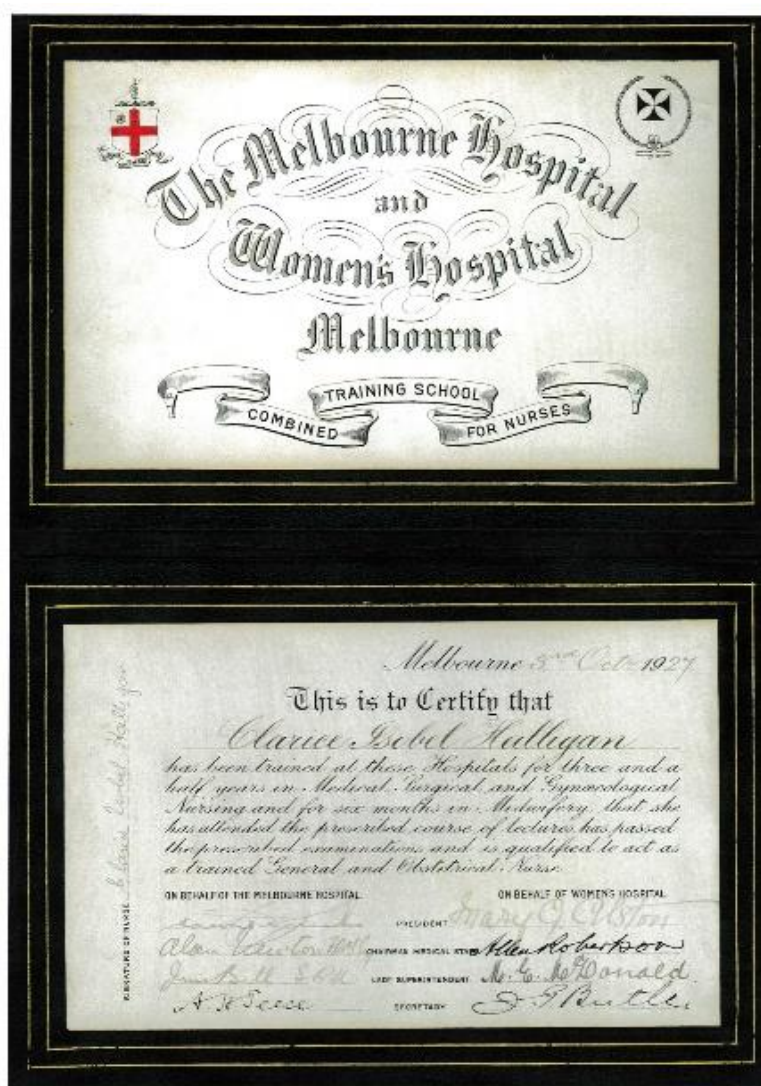 The Melbourne Hospital
and
Women's Hospital
Melbourne
COMBINED TRAINING SCHOOL FOR NURSES
Melbourne 3rd Oct 1927
This is to Certify that
Clarice Isobel Halligan
has been trained at these Hospitals for three and a
half years in Medical, Surgical, and Gynæcological
Nursing and for six months in Midwifery, that she
has attended the prescribed course of lectures, has passed
the prescribed examinations and is qualified to act as
a trained General and Obstetrical Nurse.
ON BEHALF OF THE MELBOURNE HOSPITAL. ON BEHALF OF WOMEN'S HOSPITAL
PRESIDENT Mary G.
Alan Newton CHAIRMAN MEDICAL STAFF Allan Robertson
Jane Bell LADY SUPERINTENDENT M. E. McDonald
SECRETARY Butler
SIGNATURE OF NURSE Clarice Isobel Halligan